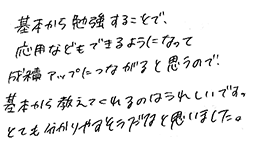 基本から勉強することで、
応用などもできるようになって
成績アップにつながると思うので、
基本から教えてくれるのはうれしいですっ
とても分かりやすそうだなと思いました。